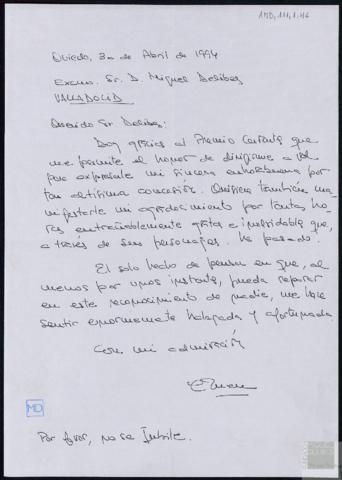 MD, 111, 1, 46
Oviedo, 30 de Abril de 1994
Excmo. Sr. D. Miguel Delibes
VALLADOLID
Querido Sr. Delibes:
Doy gracias al Premio Cervantes que
me permite el honor de dirigirme a Vd.
para expresarle mi sincera enhorabuena por
tan altísima concesión. Quisiera también ma-
nifestarle mi agradecimiento por tantas ho-
ras entrañablemente gratas e inolvidables que,
a través de sus personajes, he pasado.
El solo hecho de pensar en que, al
menos por unos instantes, pueda reparar
en este reconocimiento de nadie, me hace
sentir enormemente halagada y afortunada.
Con mi admiración
MD
Por favor, no se